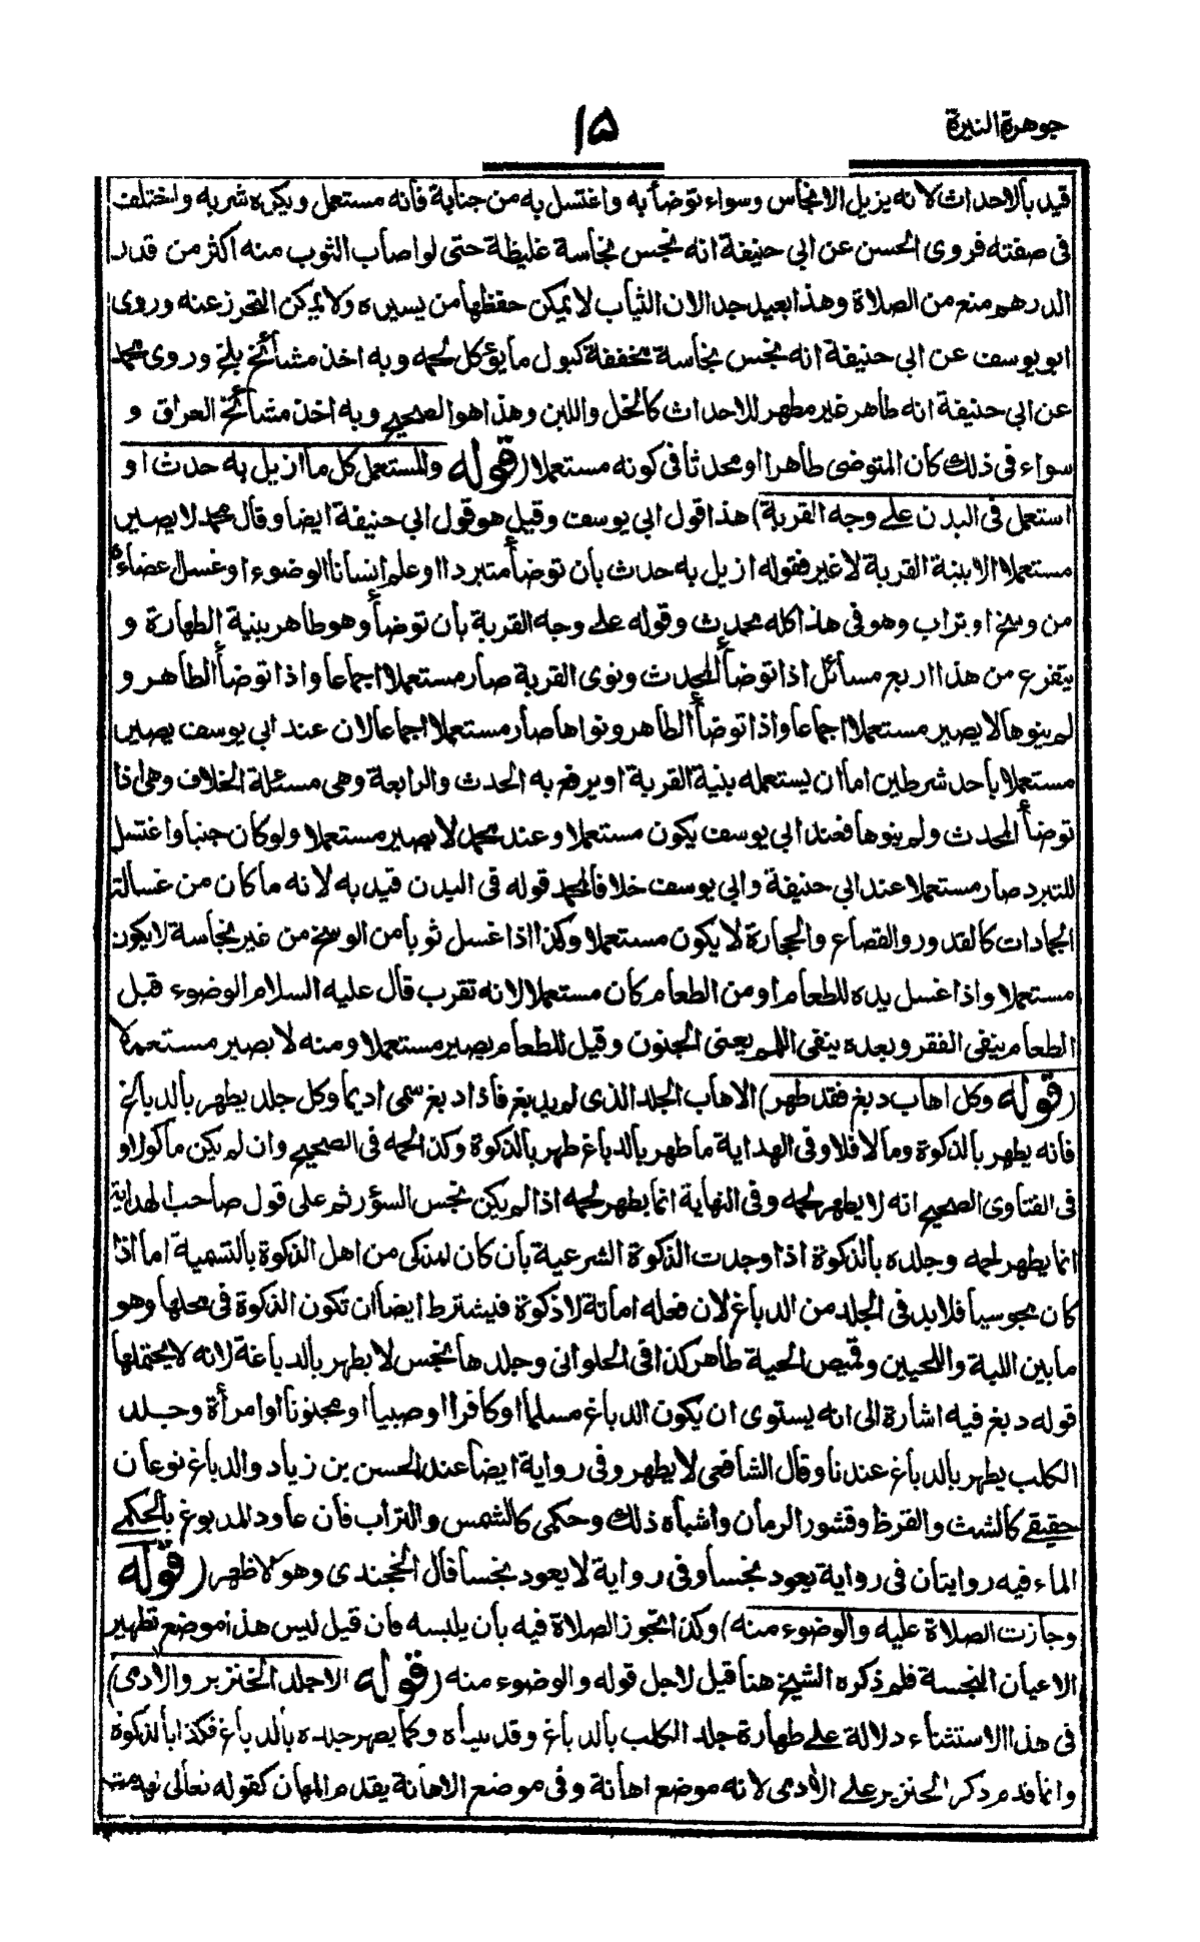 جوهرة النيرة
۱۵
قيد بالاحداث لانه يزيل الانجاس وسواء توضأ به واغتسل به من جنابة فانه مستعمل ويكره شربه واختلف
فى صفته فروى الحسن عن ابي حنيفة انه نجس نجاسة غليظة حتى لو اصاب الثوب منه اكثر من قدر
الدرهم منع من الصلاة وهذا بعيد جدا لان الثياب لا يمكن حفظها من يسيره ولا يمكن التحرز عنه وروى
ابو يوسف عن ابي حنيفة انه نجس نجاسة مخففة كبول ما يؤكل لحمه وبه اخذ مشائخ بلخ وروى محمد
عن ابي حنيفة انه طاهر غير مطهر للاحداث كالخل واللبن وهذا هو الصحيح وبه اخذ مشائخ العراق و
سواء فى ذلك كان المتوضى طاهرا او محدثا فى كونه مستعملا (قوله والمستعمل كل ما ازيل به حدث او
استعمل فى البدن على وجه القربة) هذا قول ابي يوسف وقيل هو قول ابي حنيفة ايضا وقال محمد لا يصير
مستعملا الا بنية القربة لا غير فقوله ازيل به حدث بان توضأ متبردا او علم انسانا الوضوء او غسل اعضاءه
من وسخ او تراب وهو فى هذا كله محدث وقوله على وجه القربة بان توضأ وهو طاهر بنية الطهارة و
يتفرع من هذا اربع مسائل اذا توضأ المحدث ونوى القربة صار مستعملا اجماعا واذا توضأ الطاهر و
لم ينوها لا يصير مستعملا اجماعا واذا توضأ الطاهر ونواها صار مستعملا اجماعا لان عند ابي يوسف يصير
مستعملا باحد شرطين اما ان يستعمله بنية القربة او يرفع به الحدث والرابعة وهى مسئلة الخلاف وهى اذا
توضأ المحدث ولم ينوها فعند ابي يوسف يكون مستعملا وعند محمد لا يصير مستعملا ولو كان جنبا واغتسل
للتبرد صار مستعملا عند ابي حنيفة وابي يوسف خلافا لمحمد قوله فى البدن قيد به لانه ما كان من غسالة
الجمادات كالقدور والقصاع والحجارة لا يكون مستعملا وكذا اذا غسل ثوبا من الوسخ من غير نجاسة لا يكون
مستعملا واذا غسل يده للطعام او من الطعام كان مستعملا لانه تقرب قال عليه السلام الوضوء قبل
الطعام ينفى الفقر وبعده ينفى اللمم يعنى الجنون وقيل للطعام يصير مستعملا ومنه لا يصير مستعملا
(قوله وكل اهاب دبغ فقد طهر) الاهاب الجلد الذى لم يدبغ فاذا دبغ سمى اديما وكل جلد يطهر بالدباغ
فانه يطهر بالذكوة وما لا فلا وفى الهداية ما طهر بالدباغ طهر بالذكوة وكذا لحمه فى الصحيح وان لم يكن ماكولا و
فى الفتاوى الصحيح انه لا يطهر لحمه وفى النهاية انما يطهر لحمه اذا لم يكن نجس السؤر ثم على قول صاحب الهداية
انما يطهر لحمه وجلده بالذكوة اذا وجدت الذكوة الشرعية بان كان المذكى من اهل الذكوة بالتسمية اما اذا
كان مجوسيا فلا بد فى الجلد من الدباغ لان فعله اماتة لا ذكوة فيشترط ايضا ان تكون الذكوة فى محلها وهو
ما بين اللبة واللحيين وقميص الحية طاهر كذا فى الحلوانى وجلدها نجس لا يطهر بالدباغة لانه لا يحتملها
قوله دبغ فيه اشارة الى انه يستوى ان يكون الدباغ مسلما او كافرا او صبيا او مجنونا او امرأة وجلد
الكلب يطهر بالدباغ عندنا وقال الشافعى لا يطهر وفى رواية ايضا عند الحسن بن زياد والدباغ نوعان
حقيقى كالشث والقرظ وقشور الرمان واشباه ذلك وحكمى كالشمس والتراب فان عاود المدبوغ بالحكمى
الماء فيه روايتان فى رواية يعود نجسا وفى رواية لا يعود نجسا قال الخجندى وهو الاظهر (قوله
وجازت الصلاة عليه والوضوء منه) وكذا تجوز الصلاة فيه بان يلبسه فان قيل ليس هذا موضع تطهير
الاعيان النجسة فلم ذكره الشيخ هنا قيل لاجل قوله والوضوء منه (قوله الا جلد الخنزير والآدمى)
فى هذا الاستثناء دلالة على طهارة جلد الكلب بالدباغ وقد بيناه وكما يطهر جلده بالدباغ فكذا بالذكوة
وانما قدم ذكر الخنزير على الآدمى لانه موضع اهانة وفى موضع الاهانة يقدم المهان كقوله تعالى لهدمت